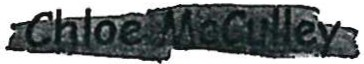 Chloe McCulley